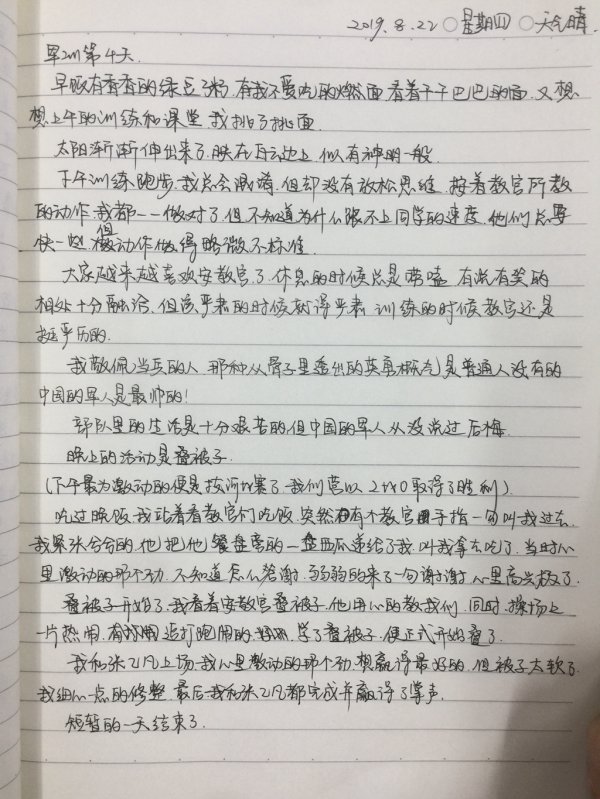 2019.8.22 ○星期四 ○天气晴
军训第4天.
早饭有香香的绿豆粥.有我不爱吃的燃面.看着干干巴巴的面.又想
想上午的训练和课堂.我挑了挑面.
太阳渐渐伸出来了.映在云边上.似有神明一般.
下午训练跑步.我总会混淆.但却没有放松思维.接着教官所教
的动作.我都一一做对了.但不知道为什么跟不上同学的速度.他们总要
快一些.但动作做得略微不标准.
大家越来越喜欢安教官了.休息的时候总是唠嗑.有说有笑的
相处十分融洽.但该严肃的时候就得严肃.训练的时候教官还是
挺严历的.
我敬佩当兵的人.那种从骨子里透出的英勇概气是普通人没有的
中国的军人是最帅的!
部队里的生活是十分艰苦的.但中国的军人从没说过后悔.
晚上的活动是叠被子.
(下午最为激动的便是拔河比赛了.我们营以2比0取得了胜利).
吃过晚饭.我站着看教官们吃饭.突然有个教官用手指一勾叫我过去.
我紧张兮兮的.他把他餐盘旁的一盘西瓜递给了我.叫我拿去吃了.当时心
里激动的那个劲.不知道怎么答谢.弱弱的来了一句谢谢.心里高兴极了.
叠被子开始了.我看着安教官叠被子.他用心的教我们.同时.操场上
一片热闹.有追打跑闹的.学了叠被子.便正式开始叠了.
我和张乙凡上场.我心里激动的那个劲.想赢得最好的.但被子太软了.
我细心一点的修整.最后我和张乙凡都完成并赢得了掌声.
短暂的一天结束了.